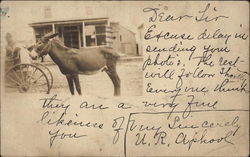 Dear Sir
Excuse delay in
sending you
photo's. The rest
will follow
Everyone think
they are a very fine
likeness of Very Sincerely
you U. R.